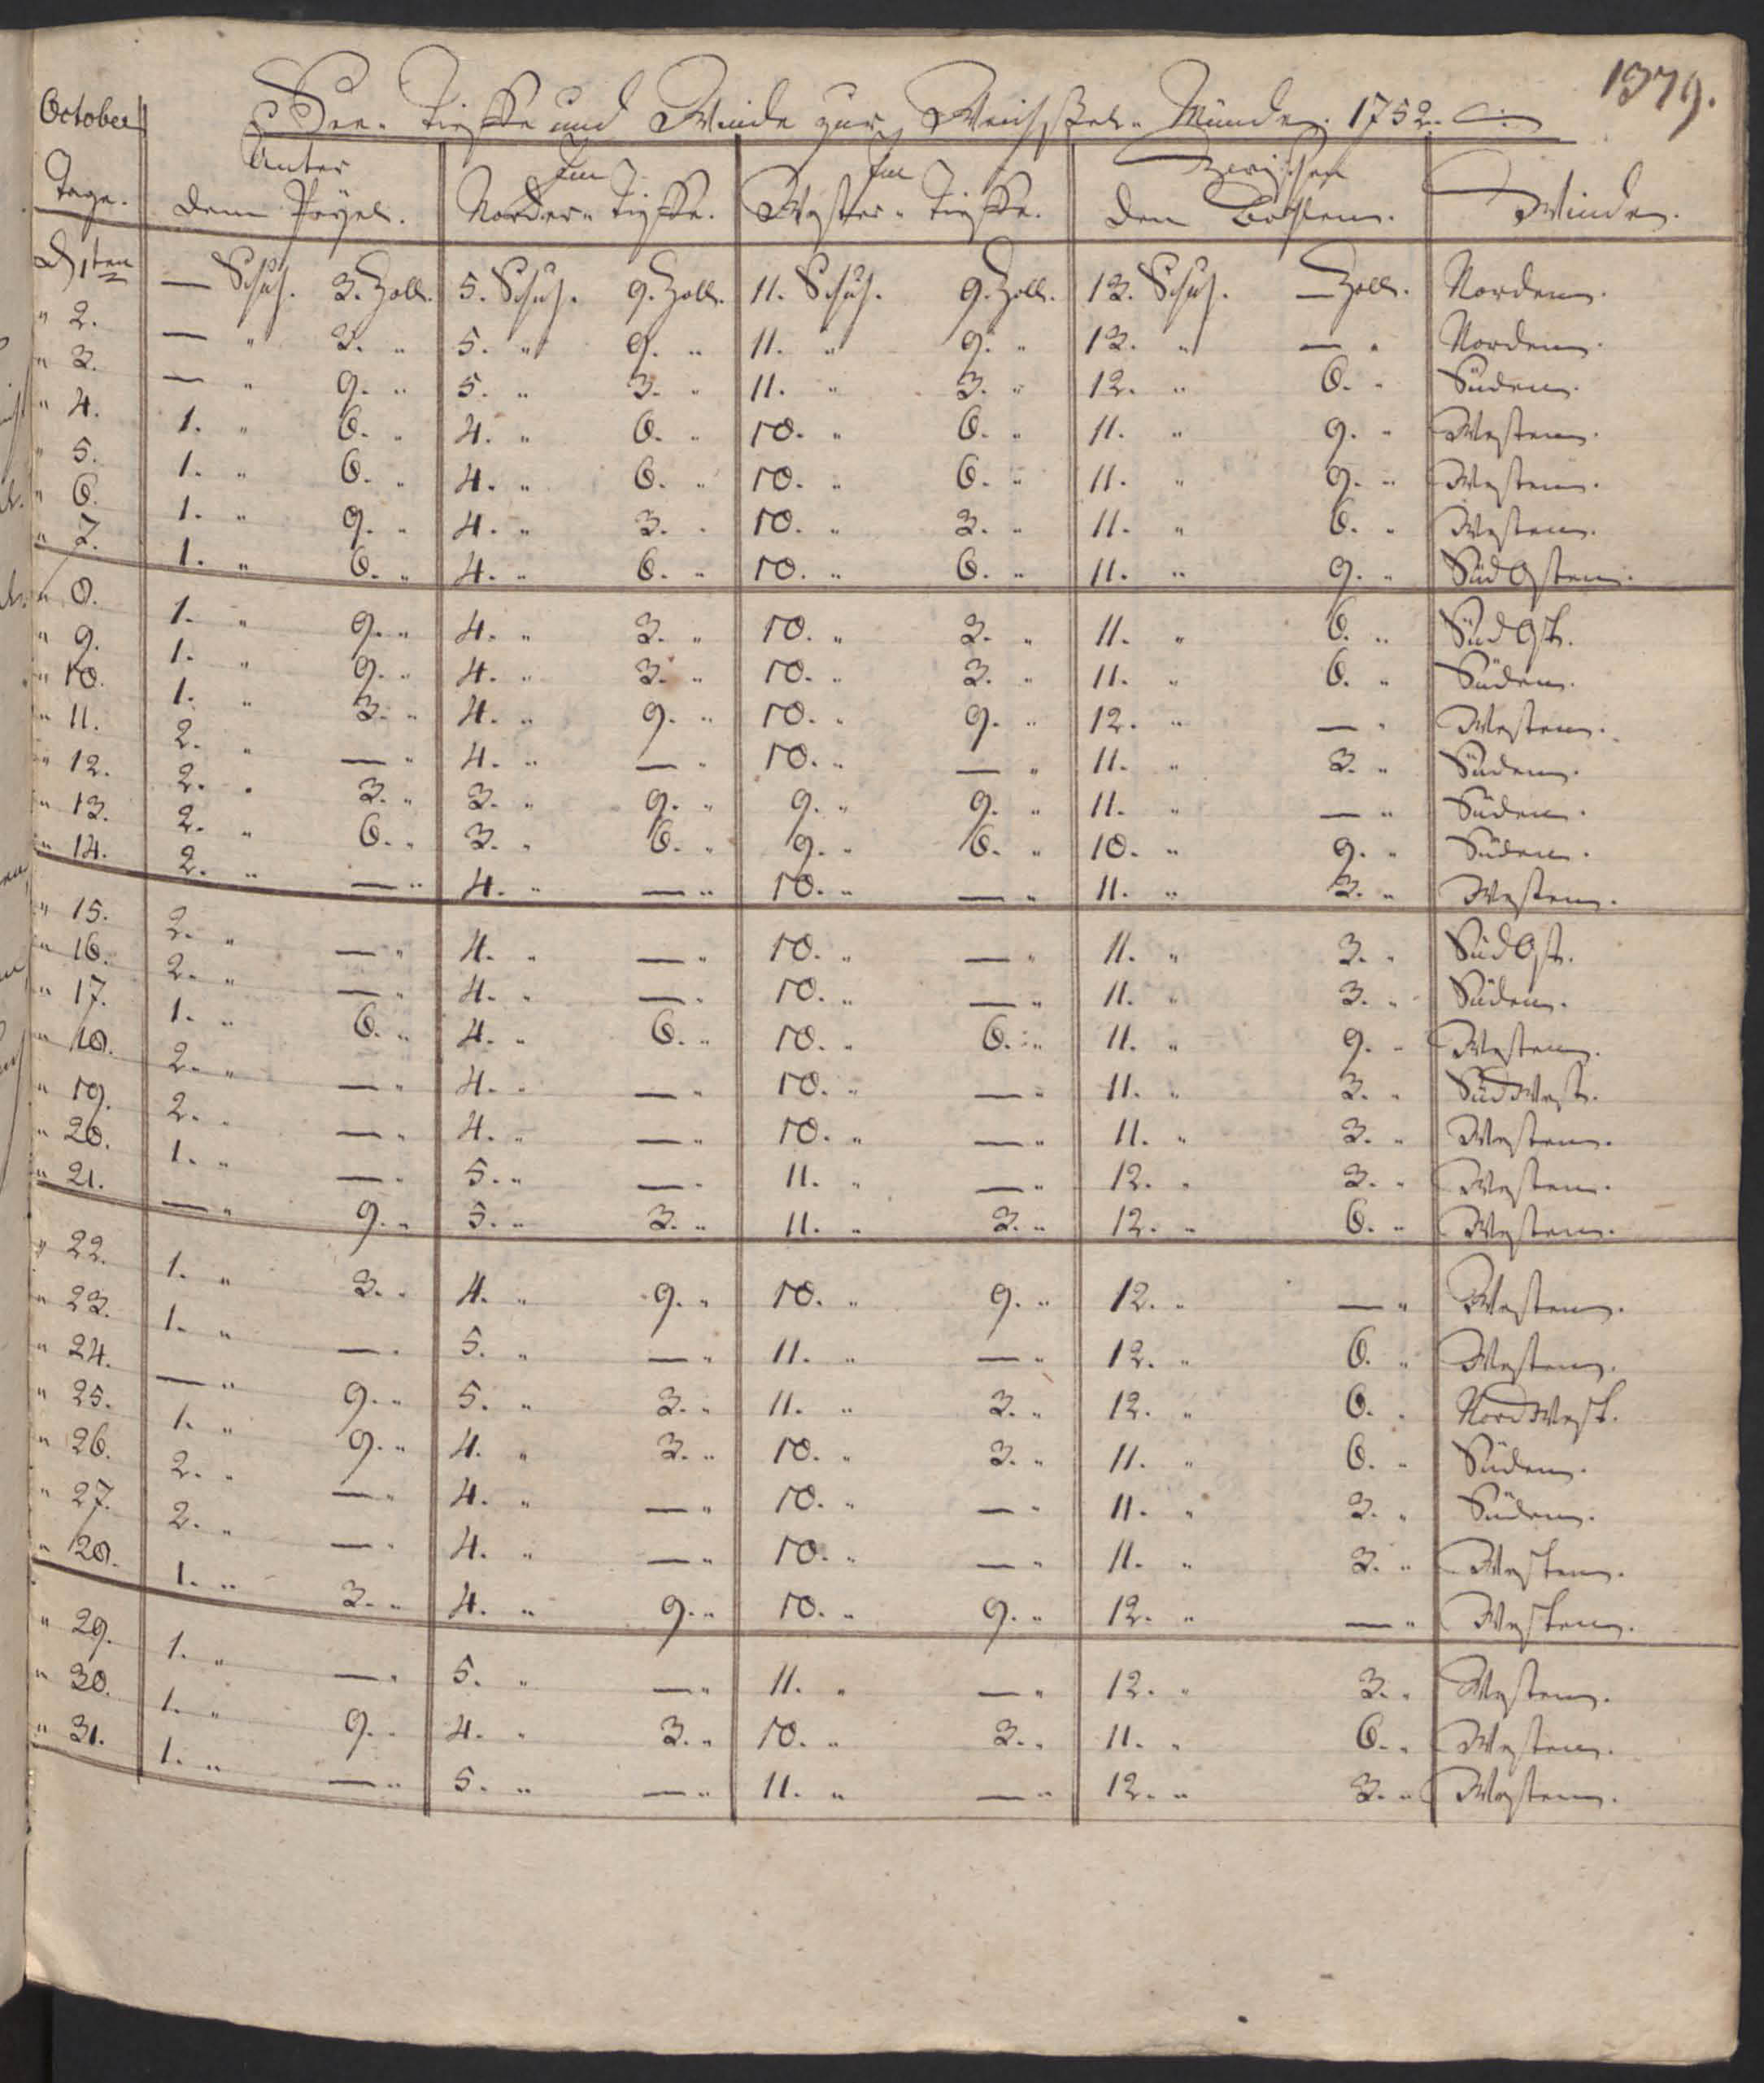 1379.
October
See- Tieffe und Winde zur Weichsel- Münde. 1752.
Tage. Unter dem Pegel. Im Norder- Tieffe. Im Wester- Tieffe. Zwischen den Winde.
D 1ten — Schuh. 3. Zoll. 5. Schuh. 9. Zoll. 11. Schuh. 9. Zoll. 13. Schuh. — Zoll. Norden.
" 2. — " 3. " 5. " 9. " 11. " 9. " 13. " — " Norden.
" 3. — " 9. " 5. " 3. " 11. " 3. " 12. " 6. " Süden.
" 4. 1. " 6. " 4. " 6. " 10. " 6. " 11. " 9. " Westen.
" 5. 1. " 6. " 4. " 6. " 10. " 6. " 11. " 9. " Westen.
" 6. 1. " 9. " 4. " 3. " 10. " 3. " 11. " 6. " Westen.
" 7. 1. " 6. " 4. " 6. " 10. " 6. " 11. " 9. " Süd Osten.
" 8. 1. " 9. " 4. " 3. " 10. " 3. " 11. " 6. " Süd Ost.
" 9. 1. " 9. " 4. " 3. " 10. " 3. " 11. " 6. " Süden.
" 10. 1. " 3. " 4. " 9. " 10. " 9. " 12. " — " Westen.
" 11. 2. " — " 4. " — " 10. " — " 11. " 3. " Süden.
" 12. 2. " 3. " 3. " 9. " 9. " 9. " 11. " — " Süden.
" 13. 2. " 6. " 3. " 6. " 9. " 6. " 10. " 9. " Süden.
" 14. 2. " — " 4. " — " 10. " — " 11. " 3. " Westen.
" 15. 2. " — " 4. " — " 10. " — " 11. " 3. " Süd Ost.
" 16. 2. " — " 4. " — " 10. " — " 11. " 3. " Süden.
" 17. 1. " 6. " 4. " 6. " 10. " 6. " 11. " 9. " Westen.
" 18. 2. " — " 4. " — " 10. " — " 11. " 3. " Süd West.
" 19. 2. " — " 4. " — " 10. " — " 11. " 3. " Westen.
" 20. 1. " — " 5. " — " 11. " — " 12. " 3. " Westen.
" 21. — " 9. " 5. " 3. " 11. " 3. " 12. " 6. " Westen.
" 22. 1. " 3. " 4. " 9. " 10. " 9. " 12. " — " Westen.
" 23. 1. " — " 5. " — " 11. " — " 12. " 6. " Westen.
" 24. — " 9. " 5. " 3. " 11. " 3. " 12. " 6. " Nord West.
" 25. 1. " 9. " 4. " 3. " 10. " 3. " 11. " 6. " Süden.
" 26. 2. " — " 4. " — " 10. " — " 11. " 3. " Süden.
" 27. 2. " — " 4. " — " 10. " — " 11. " 3. " Westen.
" 28. 1. " 3. " 4. " 9. " 10. " 9. " 12. " — " Westen.
" 29. 1. " — " 5. " — " 11. " — " 12. " 3. " Westen.
" 30. 1. " 9. " 4. " 3. " 10. " 3. " 11. " 6. " Westen.
" 31. 1. " — " 5. " — " 11. " — " 12. " 3. " Westen.